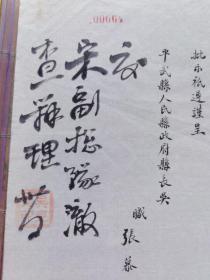 00064
批示祗遵謹呈
平武縣人民縣政府縣長吳
職張慕
交
宋副指隊澈
查辦理